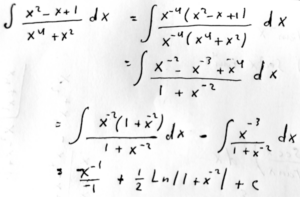 ∫ (x² - x + 1)/(x⁴ + x²) dx = ∫ (x⁻⁴(x² - x + 1))/(x⁻⁴(x⁴ + x²)) dx
= ∫ (x⁻² - x⁻³ + x⁻⁴)/(1 + x⁻²) dx
= ∫ (x⁻²(1 + x⁻²))/(1 + x⁻²) dx - ∫ x⁻³/(1 + x⁻²) dx
= x⁻¹/-1 + 1/2 Ln|1 + x⁻²| + c